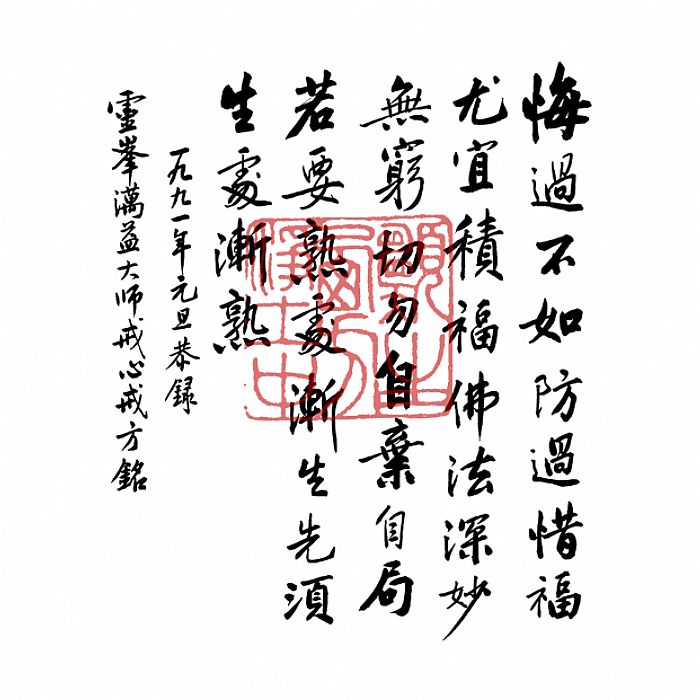 悔過不如防過惜福
尤宜積福佛法深妙
無窮切勿自棄自局
若要熟處漸生先須
生處漸熟
一九九一年元旦恭録
靈峯澫益大师戒心戒方銘